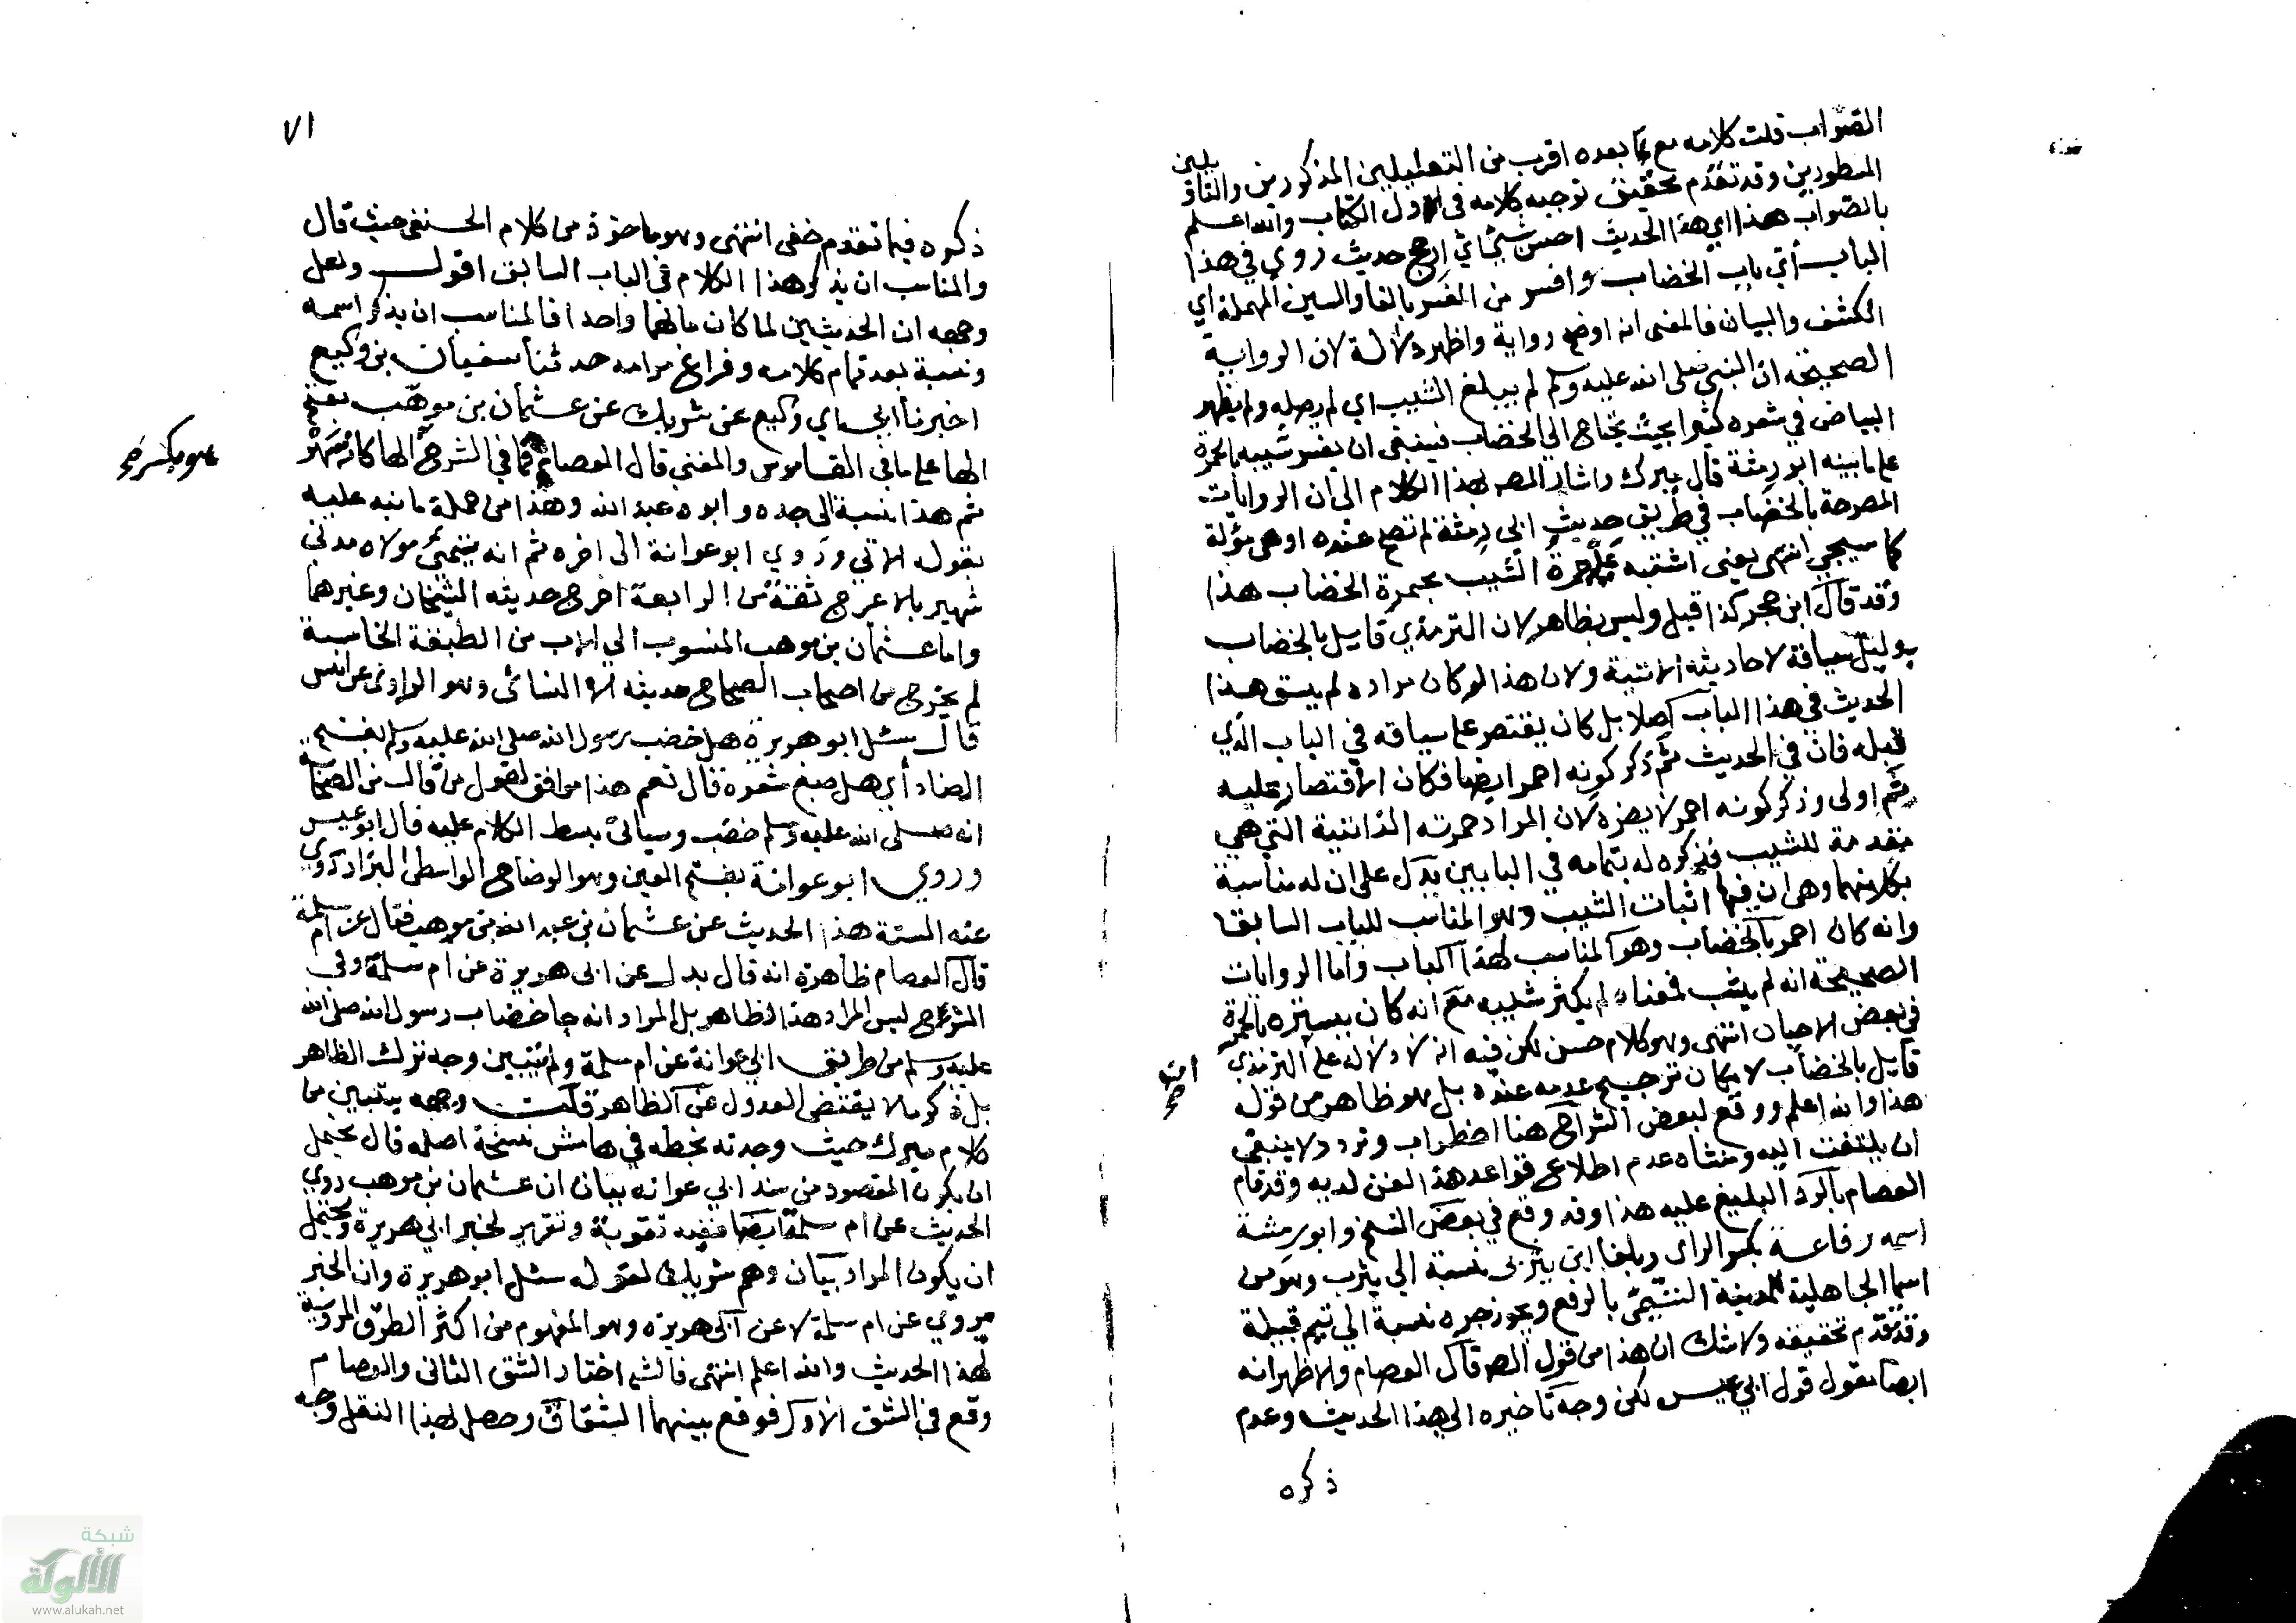 الصواب قلت كلامه مع ما بعده اقرب من التعليلين المذكورين والتاويلين
المسطورين وقد تقدم تحقيق توجيه كلامه في اول الكتاب والله اعلم
بالصواب هذا اي هذا الحديث احسن شئ اي ارجح حديث روي في هذا
الباب أي باب الخضاب وافسر من الفسر بالفا والسين المهملة أي
الكشف والبيان فالمعنى انه اوضح رواية واظهر دلالة لان الرواية
الصحيحة ان النبي صلى الله عليه وسلم لم يبلغ الشيب اي لم يصله ولم يظهر
البياض في شعره كثيرا بحيث يحتاج الي الخضاب فينبغي ان يفسر شيبه بالحمرة
على ما بينه ابو رمثة قال ميرك واشار المص بهذا الكلام الى ان الروايات
المصرحة بالخضاب في طريق حديث ابي رمثة لم تصح عنده او هي مؤلة
كما سيجي انتهى يعني اشتبه عليه حمرة الشيب بحمرة الخضاب هذا
وقد قال ابن حجر كذا قيل وليس بظاهر لان الترمذي قايل بالخضاب
بدليل سياقه لاحاديثه الاتية ولان هذا لو كان مراده لم يسق هذا
الحديث في هذا الباب اصلا بل كان يقتصر على سياقه في الباب الذي
قبله فان في الحديث ثم ذكر كونه احمر ايضا فكان الاقتصار عليه
ثم اولى وذكر كونه احمر لا يضره لان المراد حمرته الذاتية التي هي
مقدمة للشيب فذكره له بتمامه في البابين يدل على ان له مناسبة
بكل منهما وهي ان فيها اثبات الشيب وهو المناسب للباب السابق
وانه كان احمر بالخضاب وهو المناسب لهذا الباب واما الروايات
الصحيحة انه لم يشب فمعناه لم يكثر شيبه مع انه كان يستره بالحمرة
في بعض الاحيان انتهى وهو كلام حسن لكن فيه انه لا دلالة على ان الترمذي
قايل بالخضاب لامكان ترجيح عدمه عنده بل هو ظاهر من قوله
هذا والله اعلم ووقع لبعض الشراح هنا اضطراب وتردد لا ينبغي
ان يلتفت اليه ومنشاه عدم اطلاع قواعد هذا الفن لديه وقد قام
العصام بالرد البليغ عليه هذا وقد وقع في بعض النسخ وابو رمثة
اسمه رفاعة بكسر الراى وبالفا ابن يثربي نسبة الي يثرب وهو من
اسما الجاهلية للمدينة التيمي بالرفع ويجوز جره نسبة الي تيم قبيلة
وقد تقدم تحقيقه ولا شك ان هذا من قول المص قال العصام والاظهر انه
ايضا مقول قول ابي عيسى لكن وجه تاخيره الى هذا الحديث وعدم
ذكره
٧١
ذكره فيما تقدم خفي انتهى وهو ماخوذ من كلام الحنفي حيث قال
والمناسب ان يذكر هذا الكلام في الباب السابق اقول ولعل
وجهه ان الحديثين لما كان مالهما واحدا فالمناسب ان يذكر اسمه
ونسبة بعد تمام كلامه وفراغ مرامه حدثنا سفيان بن وكيع
اخبرنا ابي اي وكيع عن شريك عن عثمان بن موهب بفتح
الها على ما في القاموس والمغني قال العصام فما في الشرح الها كانه سهو
وهو بكسر صح
ثم هذا نسبة الى جده وابوه عبد الله وهذا من جملة ما نبه عليه
بقوله الاتي وروي ابو عوانة الى اخره ثم انه تيمي مولاه مدني
شهير بالاعرج ثقة من الرابعة اخرج حديثه الشيخان وغيرهما
واما عثمان بن موهب المنسوب الي الاب من الطبقة الخامسة
لم يخرج من اصحاب الصحاح حديثه الا النسائى وهو الراوي عن انس
قال سئل ابو هريرة هل خضب رسول الله صلى الله عليه وسلم بفتح
الضاد أي هل صبغ شعره قال نعم هذا موافق لقول من قال من الصحابة
انه صلى الله عليه وسلم خضب وسيأتي بسط الكلام عليه قال ابو عيسى
وروي ابو عوانة بفتح العين وهو الوضاح الواسطي البزاز روى
عنه الستة هذا الحديث عن عثمان بن عبد الله بن موهب فقال عن ام سلمة
قال العصام ظاهره انه قال بدل عن ابي هريرة عن ام سلمة وفي
الشرح ليس المراد هذا الظاهر بل المراد انه جا خضاب رسول الله صلى الله
عليه وسلم من طريق ابي عوانة عن ام سلمة ولم يتبين وجه ترك الظاهر
بل ذكر ما لا يقتضي العدول عن الظاهر قلت وجهه يتبين من
كلام ميرك حيث وجدته بخطه في هامش نسخة اصله قال يحتمل
ان يكون المقصود من سند ابي عوانه بيان ان عثمان بن موهب روي
الحديث عن ام سلمة ايضا ففيه تقوية وتقرير لخبر ابي هريرة ويحتمل
ان يكون المراد بيان وهم شريك لقوله سئل ابو هريرة وان الخبر
مروي عن ام سلمة لا عن ابي هريرة وهو المفهوم من اكثر الطرق المروية
لهذا الحديث والله اعلم انتهى فالشم اختار الشق الثاني والعصام
وقع في الشق الاول فوقع بينهما الشقاق وحصل لهذا النقل وجه
شبكة
الألوكة
www.alukah.net